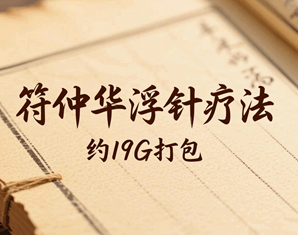 符仲华浮针疗法
约19G打包